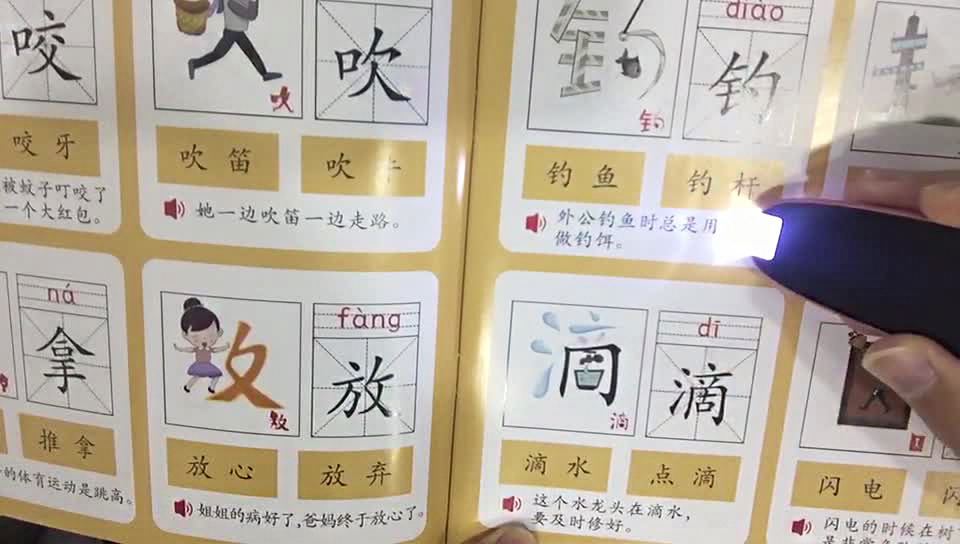 咬
咬牙
被蚊子叮咬了
一个大红包。
吹
吹
吹笛
吹牛
她一边吹笛一边走路。
diào
钓
钓
钓
钓鱼
钓杆
外公钓鱼时总是用
做钓饵。
ná
拿
推拿
的体育运动是跳高。
fàng
放
放
放心
放弃
姐姐的病好了，爸妈终于放心了。
dī
滴
滴
滴
滴水
点滴
这个水龙头在滴水，
要及时修好。
闪电
闪
闪电的时候在树